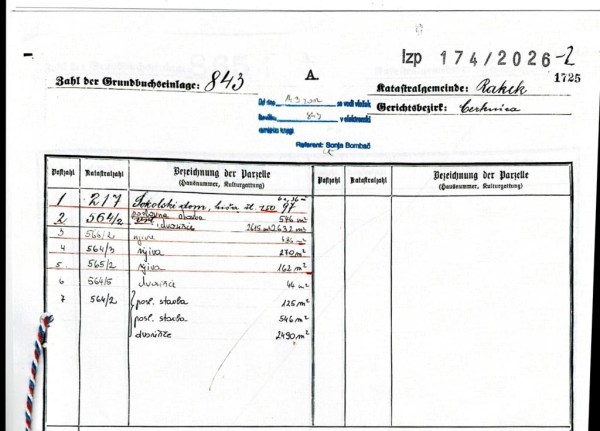 Izp 174/2026-2
1725
Zahl der Grundbuchseinlage: 843
A.
Katastralgemeinde: Rakek
Gerichtsbezirk: Cerknica
Od dne se vodi vložek
številka 843 v elektronski
zemljiški knjigi
Referent: Sonja Bombač
Postzahl Katastralzahl Bezeichnung der Parzelle
(Hausnummer, Kulturgattung)
Postzahl Katastralzahl Bezeichnung der Parzelle
(Hausnummer, Kulturgattung)
1 217 Sokolski dom, hiša št. 150 97
2 564/2 poslovna stavba 546 m²
dvorišče 2615 m² 2632 m²
3 564/2 njiva
4 564/3 njiva 270 m²
5. 565/2 njiva 162 m²
6 564/5 dvorišče 44 m²
7 564/2 posl. stavba 125 m²
posl. stavba 546 m²
dvorišče 2490 m²